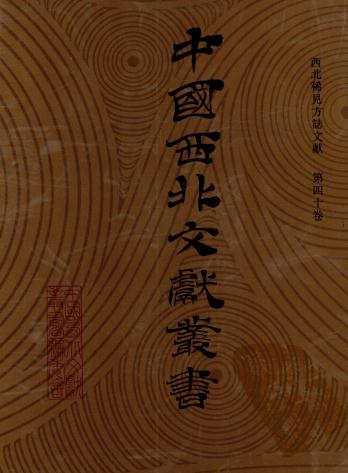 西北稀見方誌文獻 第四十卷
中國西北文獻叢書